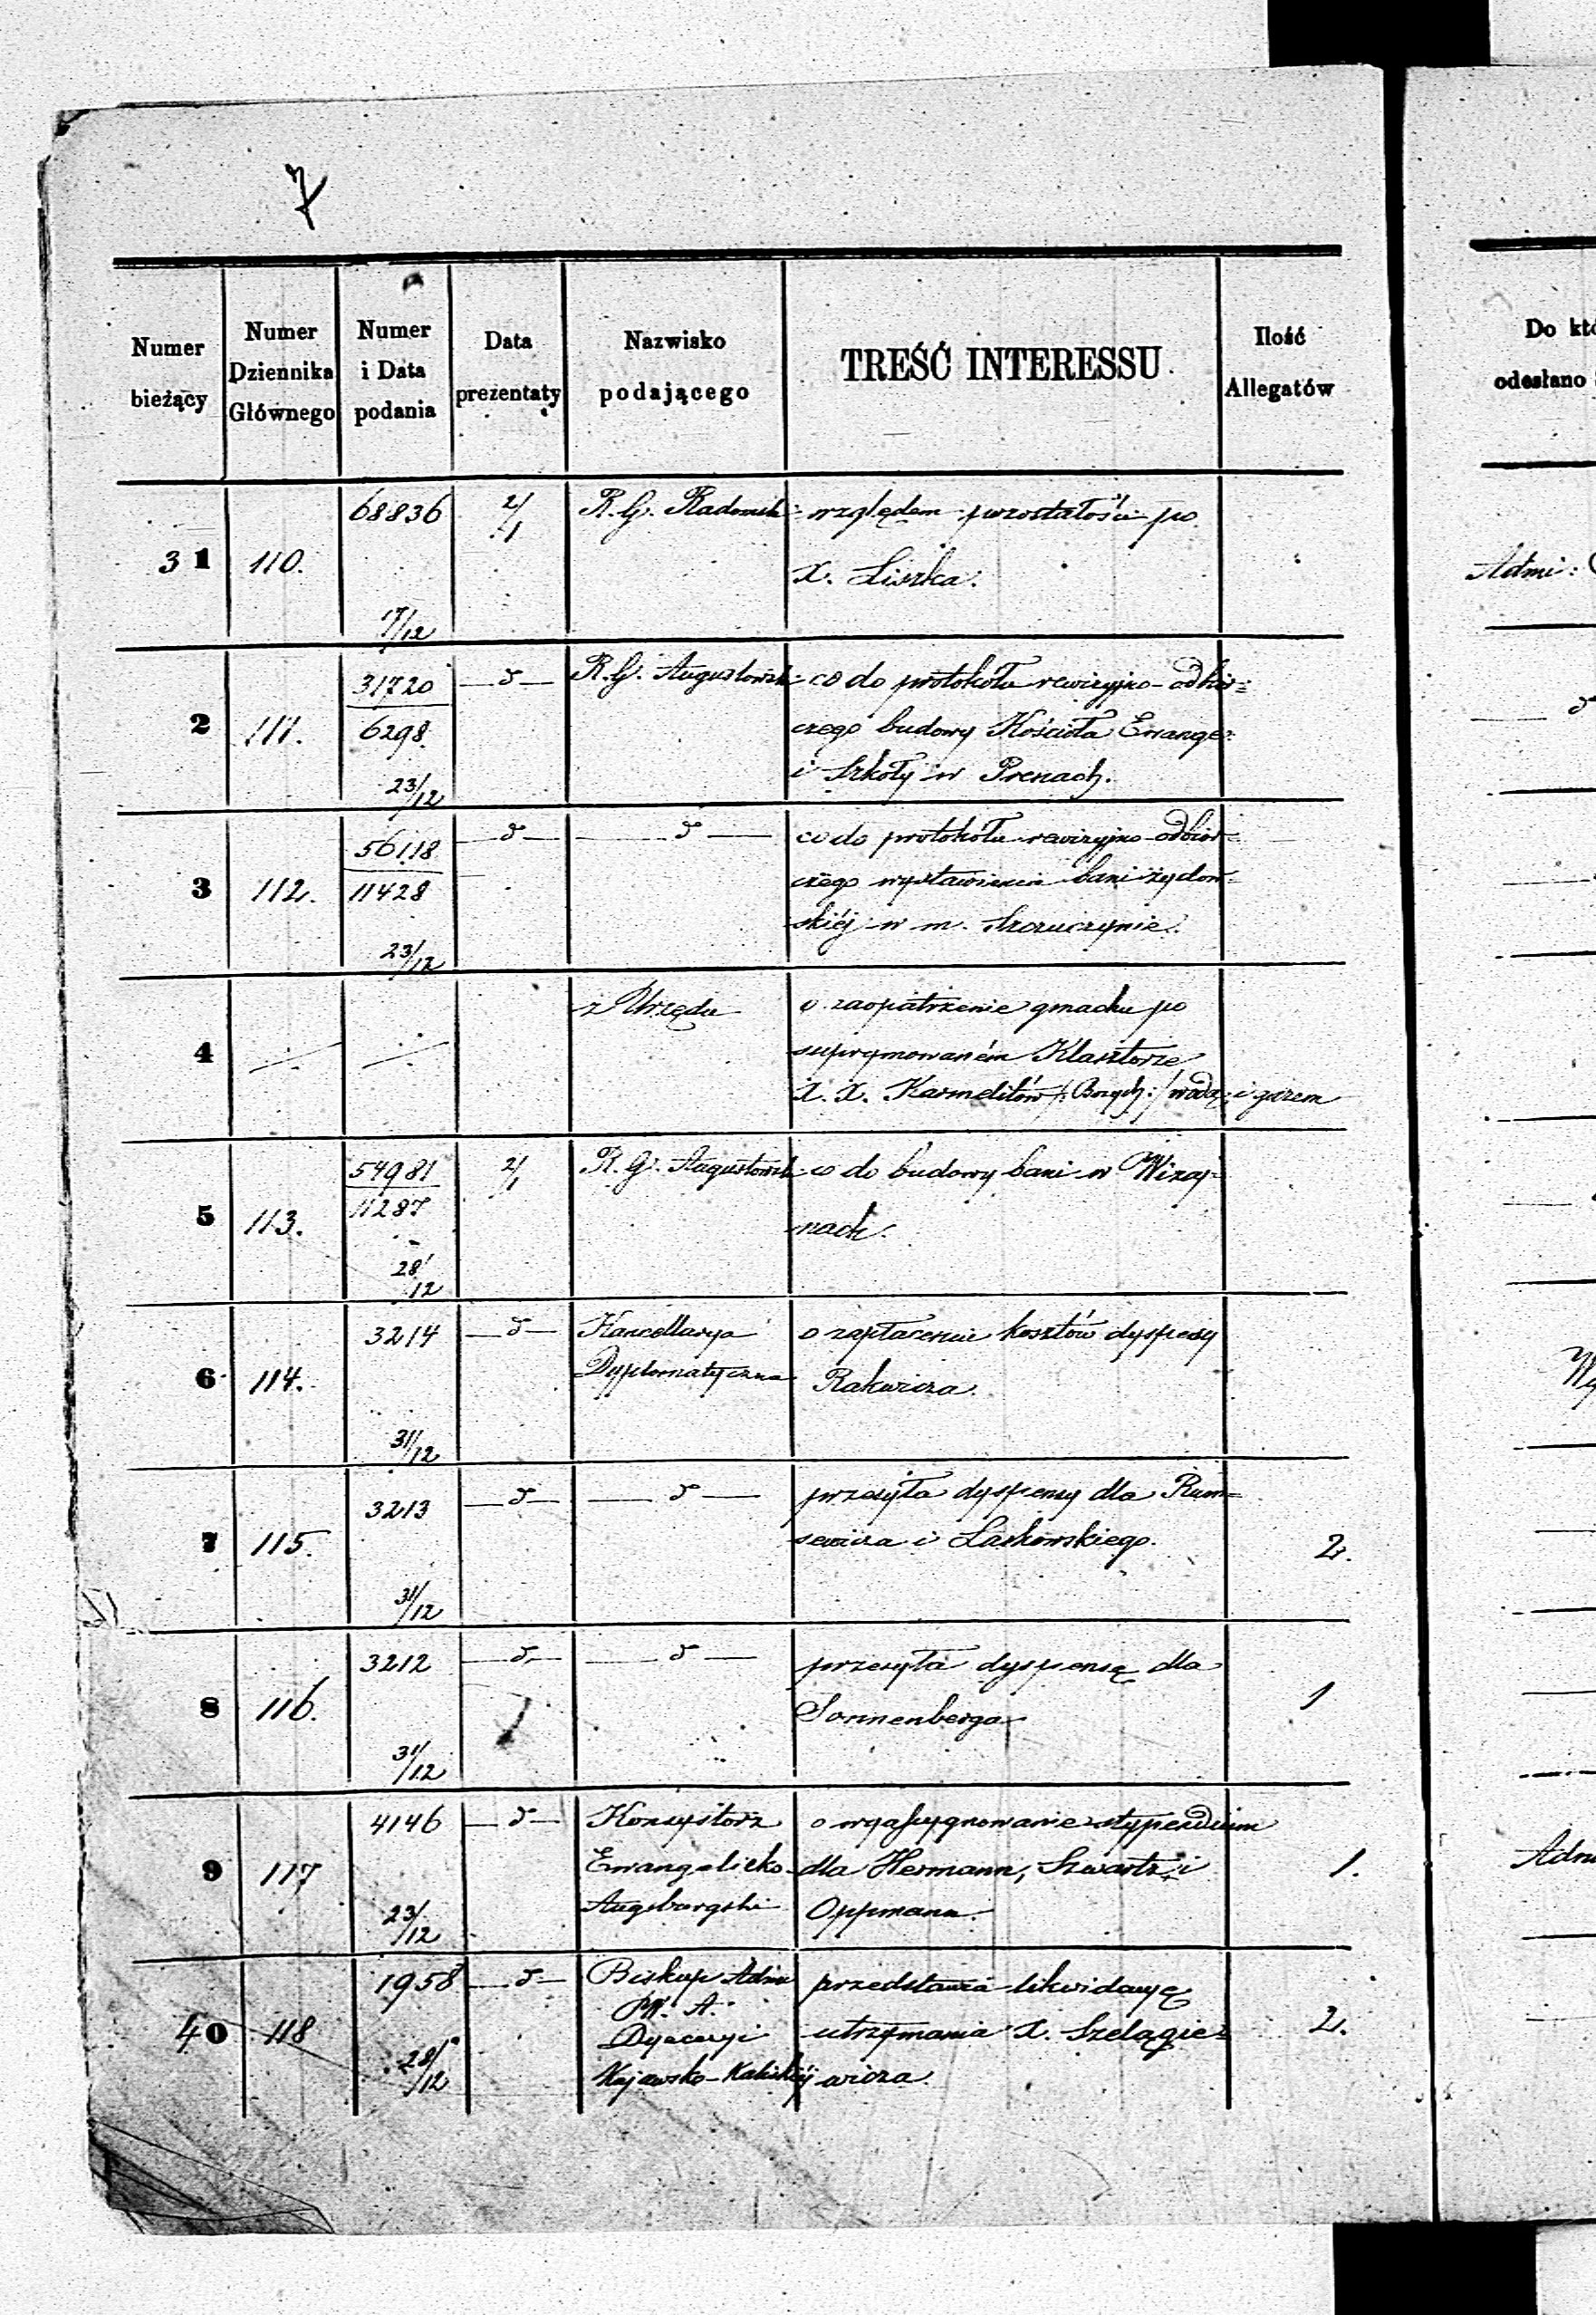 7
Numer bieżący
Numer Dziennika Głównego
Numer i Data podania
Data prezentaty
Nazwisko podającego
TREŚĆ INTERESSU
Ilość Allegatów
Do
odesłano
31 110. 68836 17/12 2/1 R. G. Radomsk: względem pozostałości po
X. Liszka.
Admi:
2 111. 31720 6298. 23/12 —d— R. G. Augustowsk: co do protokołu rewizyjno-odbior=
czego budowy Kościoła Ewange:
i Szkoły w Prenach.
3 112. 56118 11428 23/12 —d— —d— co do protokołu rewizyjno-odbior=
czego wystawienia bani żydow=
skiéj w m. Szczuczynie.
4 ·/· ·/· z Urzędu o zaopatrzenie gmachu po
suprymowaném Klasztorze
X. X. Karmelitów /: Bosych :/ wodą i gazem
5 113. 54981 11287 28/12 2/1 R. G. Augustowsk: co do budowy bani w Wizaj=
nach.
6 114. 3214 31/12 —d— Kancellarya o zapłacenie kosztów dyspensy
Dyplomatyczna Rakwicza.
7 115. 3213 31/12 —d— —d— przesyła dyspensy dla
i Laskowskiego. 2.
8 116. 3212 31/12 —d— —d— przesyła dyspensę dla
Sonnenberga 1
9 117 4146 23/12 —d— Konsystorz o wyassygnowanie stypendium
Ewangelicko dla Hermann, Szwartz i 1.
Augsburgski Oppmann.
40 118 1958 28/12 —d— Biskup Adm przedstawia likwidacyę
W. A.
Dyecezyi utrzymania X. Szelągie= 2.
Kujawsko-Kaliskiéj wicza.